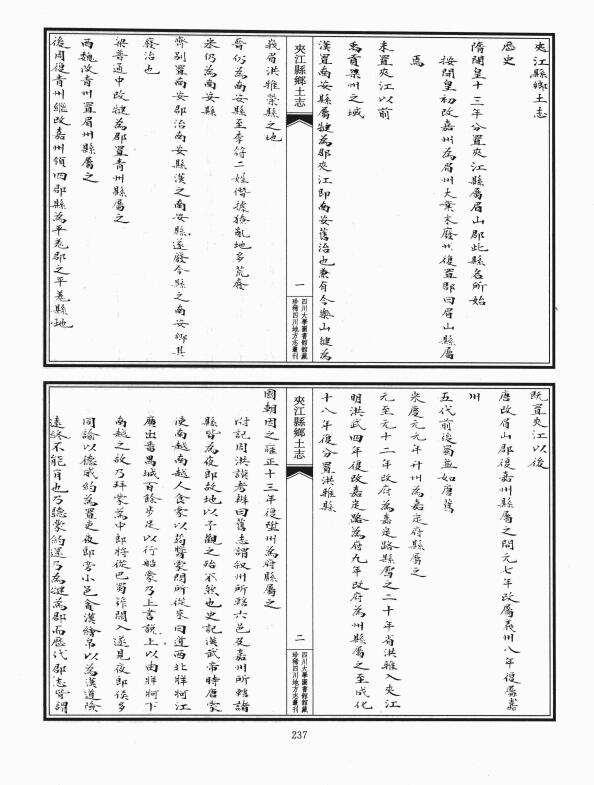 夾江縣鄉土志
歷史
隋開皇十三年分置夾江縣屬眉山郡此縣名所始
按開皇初改嘉州為眉州大業末廢廿復置郡曰眉山縣屬
焉
未置夾江以前
禹貢梁州之域
漢置南安縣屬犍為郡夾江即南安舊治也兼有今樂山犍為
夾江縣鄉土志
一
四川大學圖書館館藏
珍稀四川地方志叢刊
峩眉洪雅榮縣之地
晉仍為南安縣至李苻二姓僭據獠亂地多荒廢
宋仍為南安縣
齊別置南安郡治南安縣漢之南安縣遂廢今縣之南安鄉其
廢治也
梁普通中改犍為郡置青州縣屬之
西魏改青州置眉州縣屬之
後周復青州繼改嘉州領四郡縣為平羌郡之平羌縣地
既置夾江以後
唐改眉山郡復嘉州縣屬之開元七年改屬義州八年復屬嘉
州
五代前後蜀並如唐舊
宋慶元元年升州為嘉定府縣屬之
元至元十二年改府為嘉定路縣屬之二十年省洪雅入夾江
明洪武四年復改嘉定路為府九年改府為州縣屬之至成化
十八年復分置洪雅縣
夾江縣鄉土志
二
四川大學圖書館館藏
珍稀四川地方志叢刊
國朝因之雍正十三年復陞州為府縣屬之
附記周洪謨考辨曰舊志謂叙州所轄六邑及嘉州所轄諸
縣皆為夜郎故地以予觀之殆不然也史記漢武帝時唐蒙
使南越南越人食蒙以蒟醬蒙問所從來曰道西北牂牁江
廣出番禺城百餘步足以行船蒙乃上書說上以由牂牁下
南越之故乃拜蒙為中郎將從巴蜀筰關入遂見夜郎侯多
同諭以德威約為置吏夜郎旁小邑貪漢繒帛以為漢道險
遠終不能有也乃聽蒙約還乃為犍為郡而歷代郡志皆謂
237